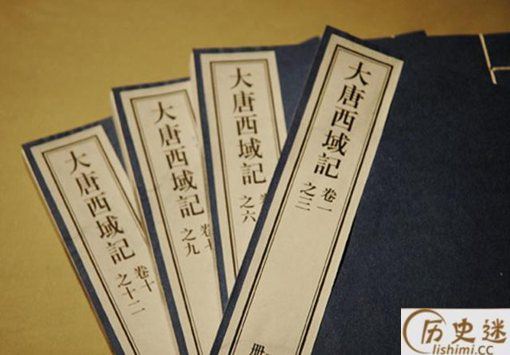 大唐西域記
卷一
之三
册
大唐西域記
之六
大唐西域記
卷
之九
大唐西域記
卷十
之十二
历史迷
lishimi.cc